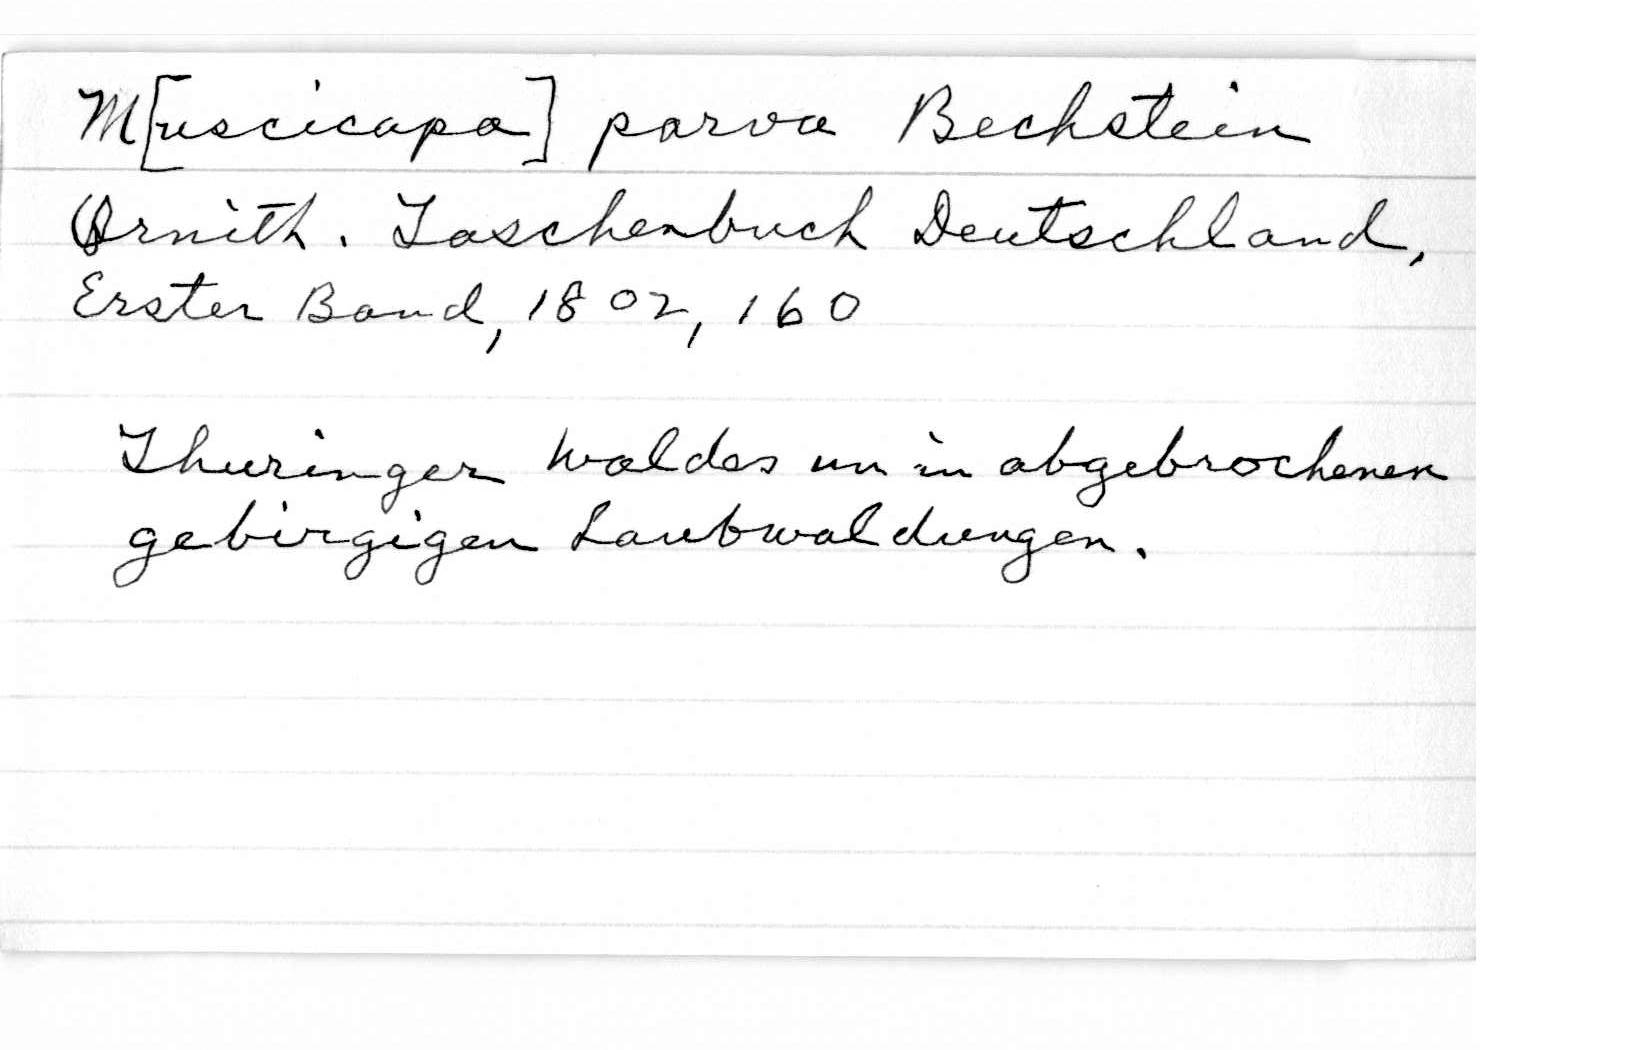 M[uscicapa] parva Bechstein
Ornith. Taschenbuch Deutschland,
Erster Band, 1802, 160
Thuringer Waldes un in abgebrochenen
gebirgigen Laubwaldungen.